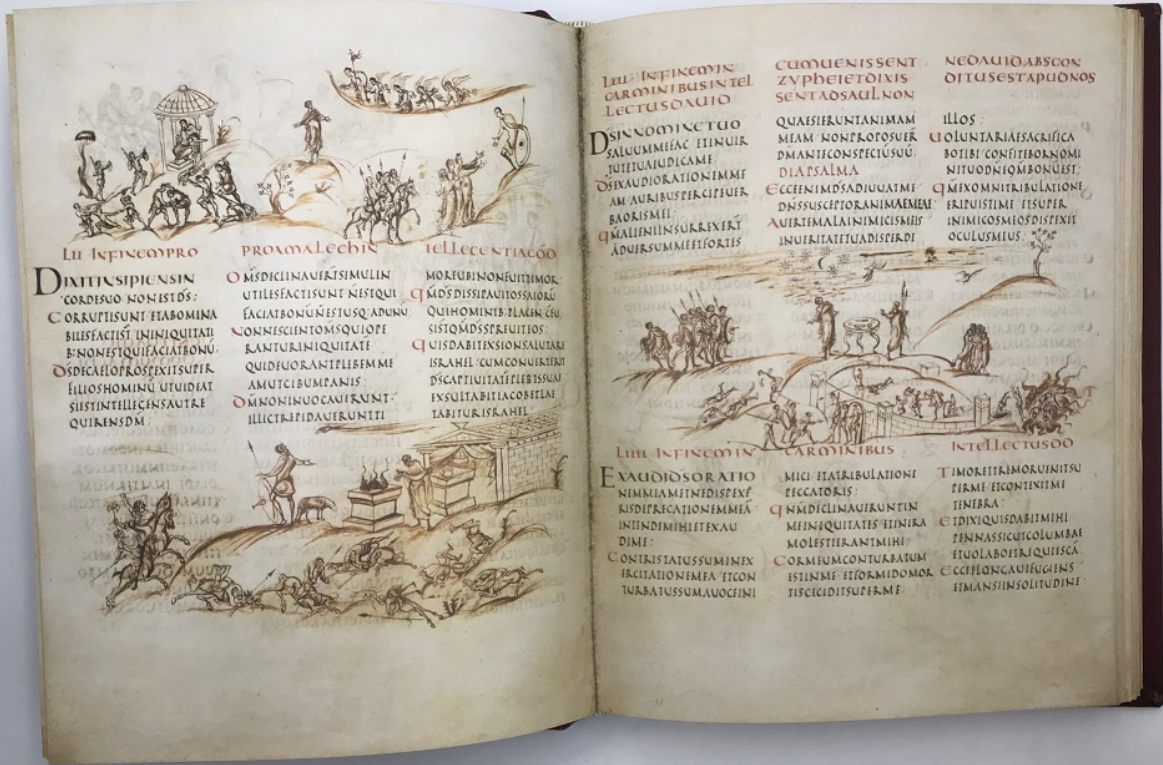 LII INFINEMPRO PROAMALECHIN TELLECENTIADD
DIXITINSIPIENSIN
CORDESUO NONESTDS:
CORRUPTISUNT ETABOMINA
BILESFACTISŪT ININIQUITATI
B:NONESTQUIFACIATBONŪ:
DSDECAELOPROSPEXITSUPER
FILIOSHOMINŪ UTUIDEAT
SIESTINTELLEGENSAUTRE
QUIRENSDM̄:
OMSDECLINAUERŪTSIMULIN
UTILESFACTISUNT N̄ESTQUI
FACIATBONŪN̄ESTUSQ:ADUNŪ
NONNESCIENTOM̄SQUIOPE
RANTURINIQUITATE
QUIDEUORANTPLEBEMME
AMUTCIBUMPANIS:
DM̄NONINUOCAUERUNT:
ILLICTREPIDAUERUNTTI
MOREUBINONFUITTIMOR:
QM̄DSDISSIPAUITOSSAEORŪ
QUIHOMINIB:PLACEN̄CEU
SISTQM̄DSSPREUITEOS:
QUISDABITEXSIONSALUTARE
ISRAHEL CUMCONUERTERIT
DSCAPTIUITATĒPLEBISSUAE
EXSULTABITIACOBETLAE
TABITURISRAHEL:
LIII INFINEMIN
CARMINIBUSINTEL
LECTUSDAUID
CUMUENISSENT
ZYPHEIETDIXIS
SENTADSAULNON
NEDAUIDABSCON
DITUSESTAPUDNOS
DSINNOMINETUO
SALUUMMEFAC ETINUIR
TUTETUAIUDICAME:
DSEXAUDIORATIONEMME
AM AURIBUSPERCIPEUER
BAORISMEI:
QM̄ALIENIINSURREXERT̄
ADUERSUMMEETFORTES
QUAESIERUNTANIMAM
MEAM NONPROPOSUER̄
DM̄ANTECONSPECTŪSUŪ:
DIAPSALMA
ECCEENIMDSADIUUATME
DN̄SSUSCEPTORANIMAEMEAE
AUERTEMALAINIMICISMEIS
INUERITATETUADISPERDE
ILLOS:
UOLUNTARIAESACRIFICA
BOTIBI CONFITEBORNOMI
NITUODN̄EQM̄BONUĒST:
QM̄EXOMNITRIBULATIONE
ERIPUISTIME ETSUPER
INIMICOSMEOSDISPEXIT
OCULUSMEUS:
LIIII INFINEMIN CARMINIBUS INTELLECTUSDD
EXAUDIDSORATIO
NEMMEAMETNEDISPEXE
RISDEPRECATIONEMMEĀ
INTENDEMIHIETEXAU
DIME:
CONTRISTATUSSUMINEX
ERCITATIONEMEA ETCON
TURBATUSSUMAUOCEINI
MICI ETATRIBULATIONE
PECCATORIS:
QN̄MDECLINAUERUNTIN
MEINIQUITATES ETINIRA
MOLESTIERANTMIHI:
CORMEUMCONTURBATUM
ESTINME ETFORMIDOMOR
TISCECIDITSUPERME:
TIMORETTREMORUENITSU
PERME ETCONTEXITME
TENEBRA:
ETDIXIQUISDABITMIHI
PENNASSICUTCOLUMBAE
ETUOLABOETREQUIESCĀ
ECCEELONGAUIFUGIENS
ETMANSIINSOLITUDINE: